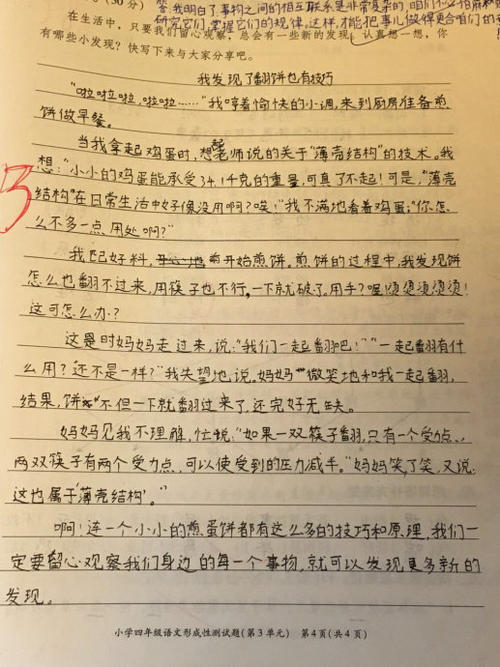 (30分)
我明白了事物之间的相互联系是非常复杂的,咱们
研究它们,掌握它们的规律,这样,才能把事儿做得更合咱们的
在生活中,只要我们留心观察,总会有一些新的发现。认真想一想,你
有哪些小发现?快写下来与大家分享吧。
我发现了翻饼也有技巧
“啦啦啦,啦啦啦……”我哼着愉快的小调,来到厨房准备煎
饼做早餐。
当我拿起鸡蛋时,想起老师说的关于“薄壳结构”的技术。我
想:“小小的鸡蛋能承受34.1千克的重量,可真了不起!可是,“薄壳
结构”在日常生活中好像没用啊?唉!”我不满地看着鸡蛋:“你怎
么不多一点用处啊?”
我匹好料,开始煎饼。煎饼的过程中,我发现饼
怎么也翻不过来,用筷子也不行,一下就破了,用手?喔!烫烫烫烫烫!
这可怎么办?
这是时妈妈走过来,说:“我们一起翻吧!”“一起翻有什
么用?还不是一样?”我失望地说,妈妈微笑地和我一起翻,
结果,饼不但一下就翻过来了,还完好无缺。
妈妈见我不理解,忙说:“如果一双筷子翻,只有一个受力点、
两双筷子有两个受力点,可以使受到的压力减半。”妈妈笑了笑,又说:
“这也属于‘薄壳结构’。”
啊!连一个小小的煎蛋饼都有这么多的技巧和原理,我们一
定要留心观察我们身边的每一个事物,就可以发现更多新的
发现。
小学四年级语文形成性测试题(第3单元) 第4页(共4页)